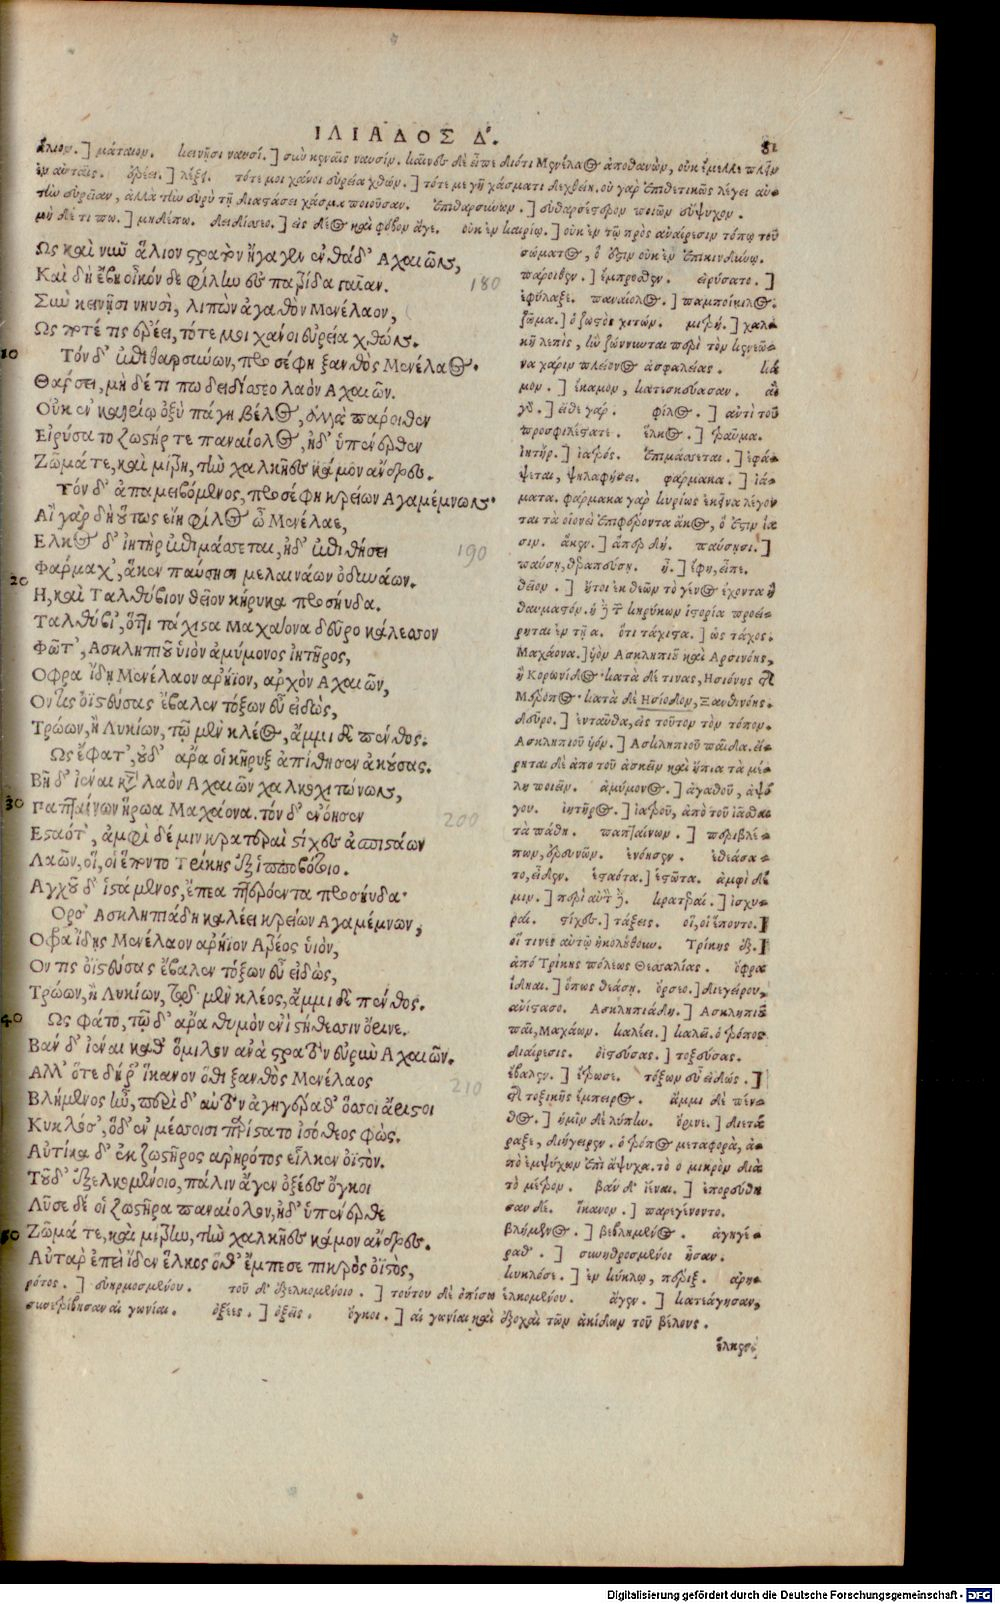 ΙΛΙΑΔΟΣ Δ.
81
ἅλιον.] μάταιον. κεινῇσι ναυσί.] σὺν κεναῖς ναυσίν. κεινὰς δὲ εἶπε διότι Μενέλαος ἀποθανὼν, οὐκ ἔμελλε πλεῖν
ἐν αὐταῖς. ἐρέει.] λέξει. τότε μοι χάνοι εὐρεῖα χθών.] τότε με γῆ χάσματι δεχθείη. οὐ γὰρ ἐπιθετικῶς λέγει αὐ-
τὴν εὐρεῖαν, ἀλλὰ τὴν εὐρὺ τῇ διαστάσει χάσμα ποιοῦσαν. ἐπιθαρσύνων.] εὐθαρσέστερον ποιῶν εὔψυχον.
μὴ δέ τί πω.] μηδέπω. δειδίσσεο.] εἰς δέος καὶ φόβον ἄγε. οὐκ ἐν καιρίῳ.] οὐκ ἐν τῷ πρὸς ἀναίρεσιν τόπῳ τοῦ
Ως καὶ νῦν ἅλιον στρατὸν ἤγαγεν ἐνθάδ' Αχαιῶν,
Καὶ δὴ ἔβη οἶκόν δε φίλην ἐς πατρίδα γαῖαν. 180
Σὺν κεινῇσι νηυσὶ, λιπὼν ἀγαθὸν Μενέλαον,
Ως ποτέ τις ἐρέει, τότε μοι χάνοι εὐρεῖα χθών.
10 Τόν δ' ἐπιθαρσύνων, προσέφη ξανθὸς Μενέλαος.
Θάρσει, μὴ δέ τι πω δειδίσσεο λαὸν Αχαιῶν.
Οὐκ ἐν καιρίῳ ὀξὺ πάγη βέλος, ἀλλὰ πάροιθεν
Εἰρύσατο ζωστήρ τε παναίολος, ἠδ' ὑπένερθεν
Ζῶμά τε, καὶ μίτρη, τὴν χαλκῆες κάμον ἄνδρες.
Τόν δ' ἀπαμειβόμενος, προσέφη κρείων Αγαμέμνων.
Αἲ γὰρ δὴ οὕτως εἴη φίλος ὦ Μενέλαε,
Ελκος δ' ἰητὴρ ἐπιμάσσεται, ἠδ' ἐπιθήσει 190
20 Φάρμαχ', ἅκεν παύσῃσι μελαινάων ὀδυνάων.
Η, καὶ Ταλθύβιον θεῖον κήρυκα προσηύδα.
Ταλθύβι', ὅτι τάχιστα Μαχάονα δεῦρο κάλεσσον
Φῶτ', Ασκληπιοῦ υἱὸν ἀμύμονος ἰητῆρος,
Οφρα ἴδῃ Μενέλαον ἀρήιον, ἀρχὸν Αχαιῶν,
Ον τις ὀϊστεύσας ἔβαλεν τόξων εὖ εἰδὼς,
Τρώων, ἢ Λυκίων, τῷ μὲν κλέος, ἄμμι δὲ πένθος.
Ως ἔφατ', οὐδ' ἄρα οἱ κῆρυξ ἀπίθησεν ἀκούσας.
Βῆ δ' ἰέναι κατὰ λαὸν Αχαιῶν χαλκοχιτώνων,
30 Παπταίνων ἥρωα Μαχάονα. τόν δ' ἐνόησεν 200
Εσταότ', ἀμφὶ δέ μιν κρατεραὶ στίχες ἀσπιστάων
Λαῶν, οἵ, οἱ ἕποντο Τρίκης ἐξ ἱπποβότοιο.
Αγχοῦ δ' ἱστάμενος, ἔπεα πτερόεντα προσηύδα.
Ορσ' Ασκληπιάδη καλέει κρείων Αγαμέμνων,
Οφρα ἴδῃς Μενέλαον ἀρήϊον Ατρέος υἱὸν,
Ον τις ὀϊστεύσας ἔβαλεν τόξων εὖ εἰδὼς,
Τρώων, ἢ Λυκίων, τῷ μὲν κλέος, ἄμμι δὲ πένθος.
40 Ως φάτο, τῷ δ' ἄρα θυμὸν ἐνὶ στήθεσσιν ὄρινε.
Βάν δ' ἰέναι καθ' ὅμιλον ἀνὰ στρατὸν εὐρὺν Αχαιῶν.
Αλλ' ὅτε δή ῥ' ἵκανον ὅθι ξανθὸς Μενέλαος 210
Βλήμενος ἦν, περὶ δ' αὐτὸν ἀγηγέραθ' ὅσσοι ἄριστοι
Κυκλόσ', ὅδ' ἐν μέσσοισι παρίστατο ἰσόθεος φώς.
Αὐτίκα δ' ἐκ ζωστῆρος ἀρηρότος εἷλκεν ὀϊστὸν.
Τοῦδ' ἐξελκομένοιο, πάλιν ἄγεν ὀξέες ὄγκοι
Λῦσε δέ οἱ ζωστῆρα παναίολον, ἠδ' ὑπένερθε
50 Ζῶμά τε, καὶ μίτρην, τὴν χαλκῆες κάμον ἄνδρες.
Αὐτὰρ ἐπεὶ ἴδεν ἕλκος ὅθ' ἔμπεσε πικρὸς ὀϊστὸς,
σώματος, ὅ ἐστιν οὐκ ἐν ἐπικινδύνῳ.
πάροιθεν.] ἔμπροσθεν. εἰρύσατο.]
ἐφύλαξε. παναίολος.] παμποίκιλος.
ζῶμα.] ὁ ζωστὸς χιτών. μίτρη.] χαλ-
κῆ λεπὶς, ἣν ζώννυνται περὶ τὸν κενεῶ-
να χάριν πλείονος ἀσφαλείας. κά-
μον.] ἔκαμον, κατεσκεύασαν. αἲ
γάρ.] εἴθε γάρ. φίλος.] ἀντὶ τοῦ
προσφιλέστατε. ἕλκος.] τραῦμα.
ἰητήρ.] ἰατρός. ἐπιμάσσεται.] ἐφά-
ψεται, ψηλαφήσει. φάρμακα.] ἰά-
ματα. φάρμακα γὰρ κυρίως ἐκεῖνα λέγον
ται τὰ οἱονεὶ ἐπιφέροντα ἄκος, ὅ ἐστιν ἴα
σιν. ἅκεν.] ἅπερ δή. παύσῃσι.]
παύσῃ, θεραπεύσῃ. ἦ.] ἔφη, εἶπε.
θεῖον.] ἤτοι ἐκ θεῶν τὸ γένος ἔχοντα ἢ
θαυμαστόν. ἡ δὲ τῶν κηρύκων ἱστορία προεί-
ρηται ἐν τῇ α. ὅτι τάχιστα.] ὡς τάχος.
Μαχάονα.] υἱὸν Ασκληπιοῦ καὶ Αρσινόης,
ἢ Κορωνίδος. κατὰ δέ τινας, Ησιόνης τῆς
Μέροπος. κατὰ δὲ Ησίοδον, Ξανθινόης.
δεῦρο.] ἐνταῦθα, εἰς τοῦτον τὸν τόπον.
Ασκληπιοῦ υἱόν.] Ασκληπιοῦ παῖδα. εἴ-
ρηται δὲ ἀπὸ τοῦ ἀσκεῖν καὶ ἤπια τὰ μέ-
λη ποιεῖν. ἀμύμονος.] ἀγαθοῦ, ἀψό-
γου. ἰητῆρος.] ἰατροῦ, ἀπὸ τοῦ ἰᾶσθαι
τὰ πάθη. παπταίνων.] περιβλέ-
πων, ἐρευνῶν. ἐνόησεν. ἐθεάσα-
το, εἶδεν. ἑσταότα.] ἑστῶτα. ἀμφὶ δέ
μιν.] περὶ αὐτὸν δέ. κρατεραί.] ἰσχυ-
ραί. στίχες.] τάξεις. οἵ, οἱ ἕποντο.]
οἵ τινες αὐτῷ ἠκολούθουν. Τρίκης ἐξ.]
ἀπὸ Τρίκης πόλεως Θεσσαλίας. ὄφρα
ἴδηαι.] ὅπως θεάσῃ. ὄρσεο.] διεγείρου,
ἀνίστασο. Ασκληπιάδη.] Ασκληπιοῦ
παῖ, Μαχάων. καλέει.] καλεῖ. ὁ τρόπος
διαίρεσις. ὀϊστεύσας.] τοξεύσας.
ἔβαλεν.] ἔτρωσε. τόξων εὖ εἰδώς.]
τῆς τοξικῆς ἔμπειρος. ἄμμι δὲ πέν-
θος.] ἡμῖν δὲ λύπην. ὄρινε.] διετά-
ραξε, διήγειρεν. ὁ τρόπος μεταφορὰ, ἀ-
πὸ ἐμψύχων ἐπὶ ἄψυχα. τὸ ο μικρὸν διὰ
τὸ μέτρον. βάν δ' ἰέναι.] ἐπορεύθη
σαν δέ. ἵκανον.] παρεγένοντο.
βλήμενος.] βεβλημένος. ἀγηγέ-
ραθ'.] συνηθροισμένοι ἦσαν.
κυκλόσε.] ἐν κύκλῳ, πέριξ. ἀρη-
ρότος.] συνηρμοσμένου. τοῦ δ' ἐξελκομένοιο.] τούτου δὲ ὀπίσω ἑλκομένου. ἄγεν.] κατεάγησαν,
συνετρίβησαν αἱ γωνίαι. ὀξέες.] ὀξεῖς. ὄγκοι.] αἱ γωνίαι καὶ ἐξοχαὶ τῶν ἀκίδων τοῦ βέλους.
Digitalisierung gefördert durch die Deutsche Forschungsgemeinschaft - DFG